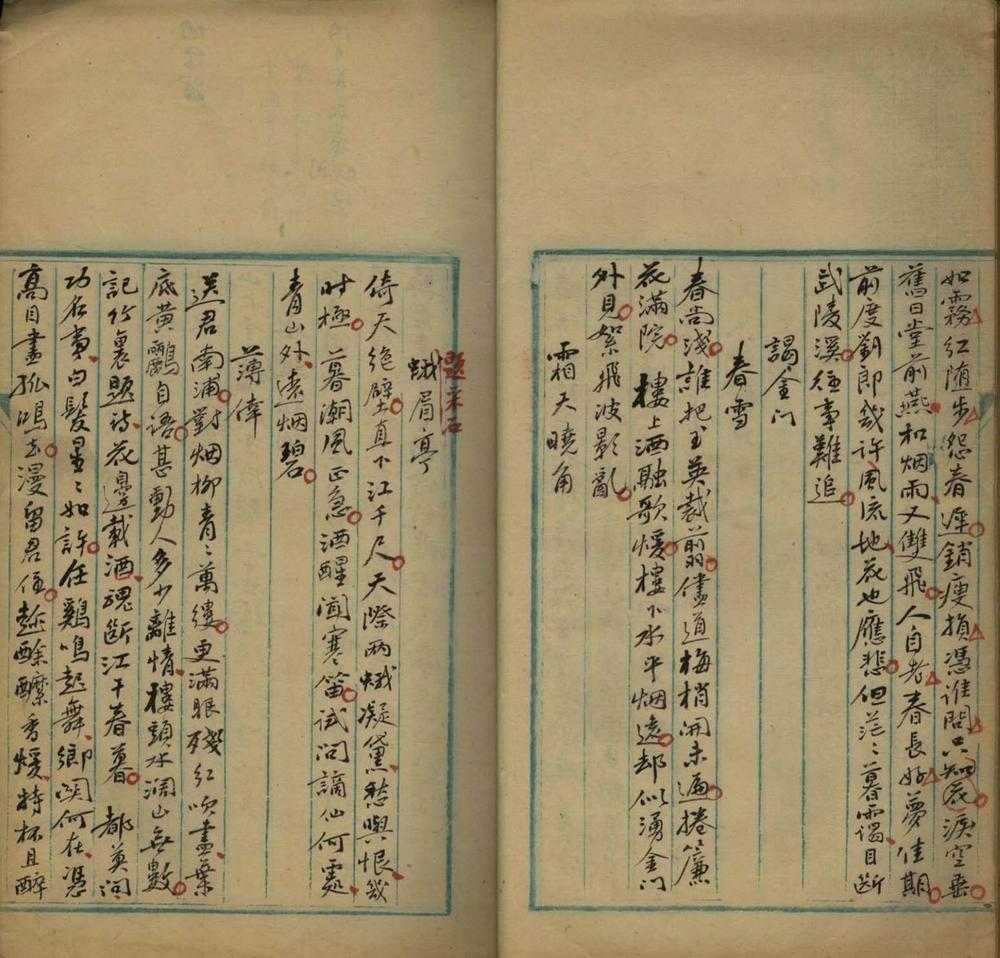 如霧紅隨步怨春遲銷瘦損憑誰問只知花淚空垂
舊日堂前燕和烟雨又雙飛人自老春長好夢佳期
前度劉郎幾許風流地花也應悲但茫〻暮靄目斷
武陵溪往事難追
謁金門
春雪
春尚淺誰把玉英裁翦儘道梅梢開未遍捲簾
花滿院樓上酒融歌煖樓下水平烟遠却似湧金門
外見絮飛波影亂
霜天曉角
題采石
蛾眉亭
倚天絕壁直下江千尺天際兩蛾凝黛愁與恨幾
时極暮潮風正急酒醒聞寒笛試问謫仙何處
青山外遠烟碧
薄倖
送君南浦對烟柳青〻萬縷更滿眼殘紅吹盡葉
底黄鸝自語甚動人多少離情樓頭水濶山無數
記竹裏題詩花邊載酒魂斷江干春暮都莫问
功名事白髮星〻如許任鷄鳴起舞鄉関何在憑
高目盡孤鴻去漫留君住趁酴醾香煖持杯且醉